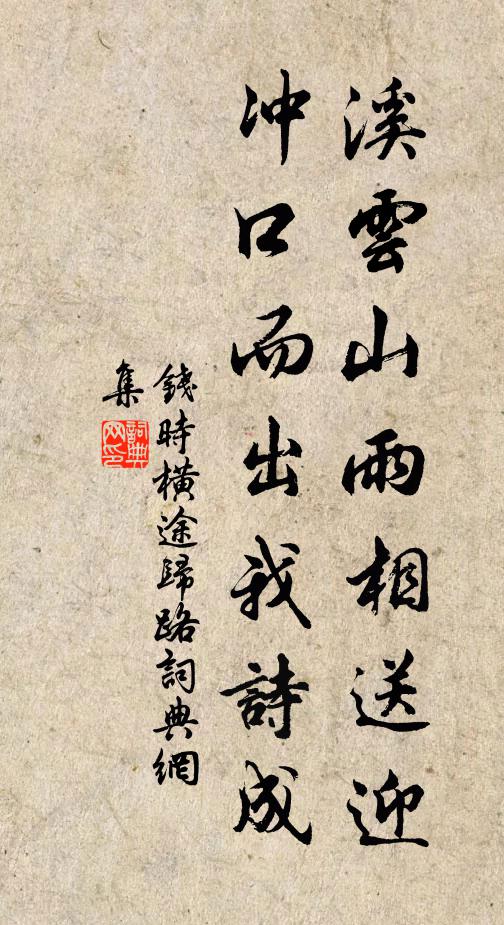 溪雲山雨相送迎
冲口而出我詩成
錢時橫途歸路詞典網
集
詞典网印